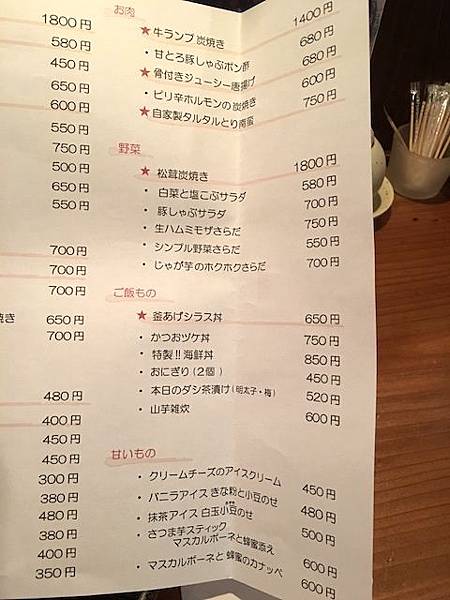 1800円
580円
450円
650円
600円
550円
750円
500円
650円
550円
700円
700円
700円
焼き 650円
700円
480円
400円
450円
450円
300円
380円
480円
380円
400円
350円
お肉
★牛ランプ炭焼き 1400円
・甘とろ豚しゃぶポン酢 680円
★骨付きジューシー唐揚げ 680円
・ピリ辛ホルモンの炭焼き 600円
★自家製タルタルとり南蛮 750円
野菜
★松茸炭焼き 1800円
・白菜と塩こぶサラダ 580円
・豚しゃぶサラダ 700円
・生ハムミモザさらだ 750円
・シンプル野菜さらだ 550円
・じゃが芋のホクホクさらだ 700円
ご飯もの
★釜あげシラス丼 650円
・かつおヅケ丼 750円
・特製!!海鮮丼 850円
・おにぎり(2個) 450円
・本日のダシ茶漬け(明太子・梅) 520円
・山芋雑炊 600円
甘いもの
・クリームチーズのアイスクリーム 450円
・バニラアイス きな粉と小豆のせ 480円
・抹茶アイス 白玉小豆のせ 500円
・さつま芋スティック
マスカルポーネと蜂蜜添え 600円
・マスカルポーネと蜂蜜のカナッペ 600円